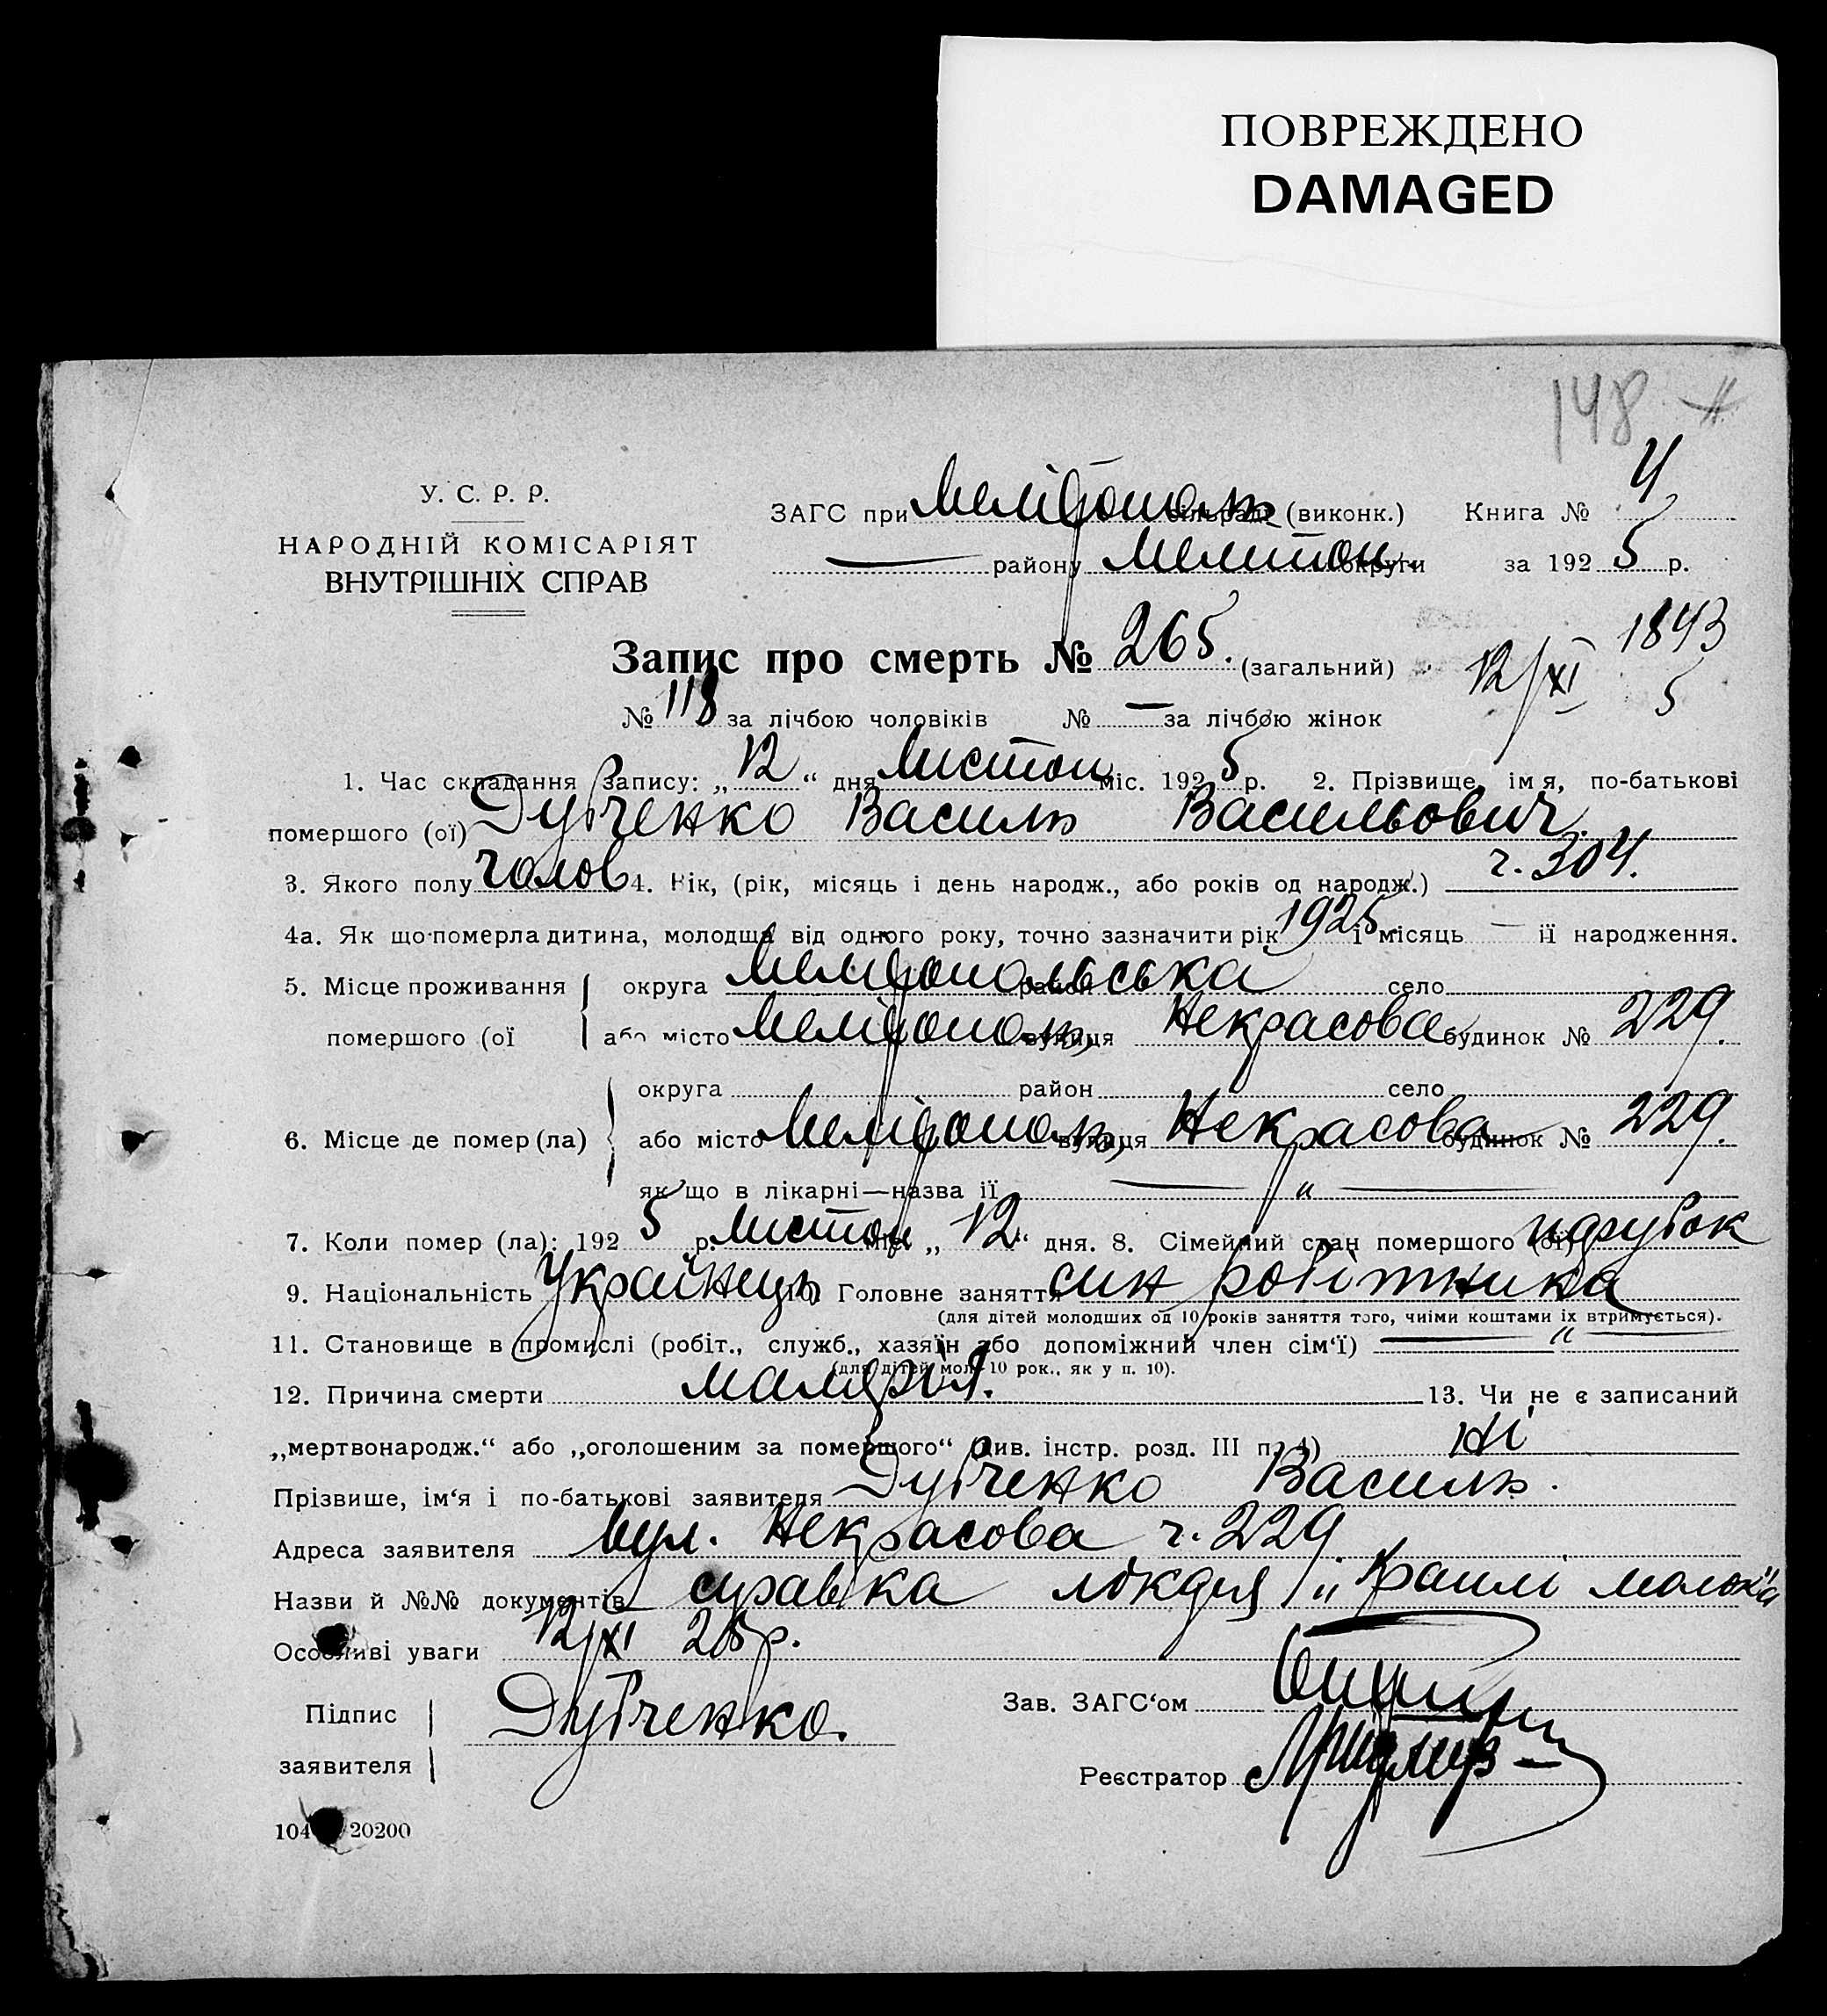 ПОВРЕЖДЕНО
DAMAGED
148
У. С. Р. Р.
НАРОДНІЙ КОМІСАРІЯТ
ВНУТРІШНІХ СПРАВ
ЗАГС при Мелітополь сільраді (виконк.) Книга № 4
— району Мелитоп. округи за 1925 р.
1843
12/XI 5
Запис про смерть № 265. (загальний)
№ 118 за лічбою чоловіків № — за лічбою жінок
1. Час складання запису: „12“ дня Листоп міс. 1925 р. 2. Прізвище, імя, по-батькові
помершого (ої) Дубченко Василь Васильович.
3. Якого полу голов 4. Вік, (рік, місяць і день народж., або років од народж.) ч. 304.
4а. Як що померла дитина, молодща від одного року, точно зазначити рік 1925 і місяць — ії народження.
5. Місце проживання округа Мелітопольська район село
помершого (ої або місто Мелітополь, вулиця Некрасова будинок № 229.
округа район село
6. Місце де помер (ла) або місто Мелітополь, вулиця Некрасова будинок № 229.
як що в лікарні—назва ії — „ —
7. Коли помер (ла): 1925 р. Листоп міс. „12“ дня. 8. Сімейний стан помершого (ої) парубок
9. Національність Українець Головне заняття син робітника
(для дітей молодших од 10 років заняття того, чиїми коштами іх втримується).
11. Становище в промислі (робіт., служб., хазяїн або допоміжний член сім‘ї) — „ —
(для дітей мол. 10 рок., як у п. 10).
12. Причина смерти малярія. 13. Чи не є записаний
„мертвонародж.“ або „оголошеним за помершого“ (див. інстр. розд. III п. 4) ні
Прізвише, ім‘я і по-батькові заявителя Дубченко Василь.
Адреса заявителя вул. Некрасова ч. 229.
Назви й №№ документів справка
Особливі уваги 12/XI 25 р.
Підпис
заявителя Дубченко.
Зав. ЗАГС‘ом
Реєстратор
104 20200